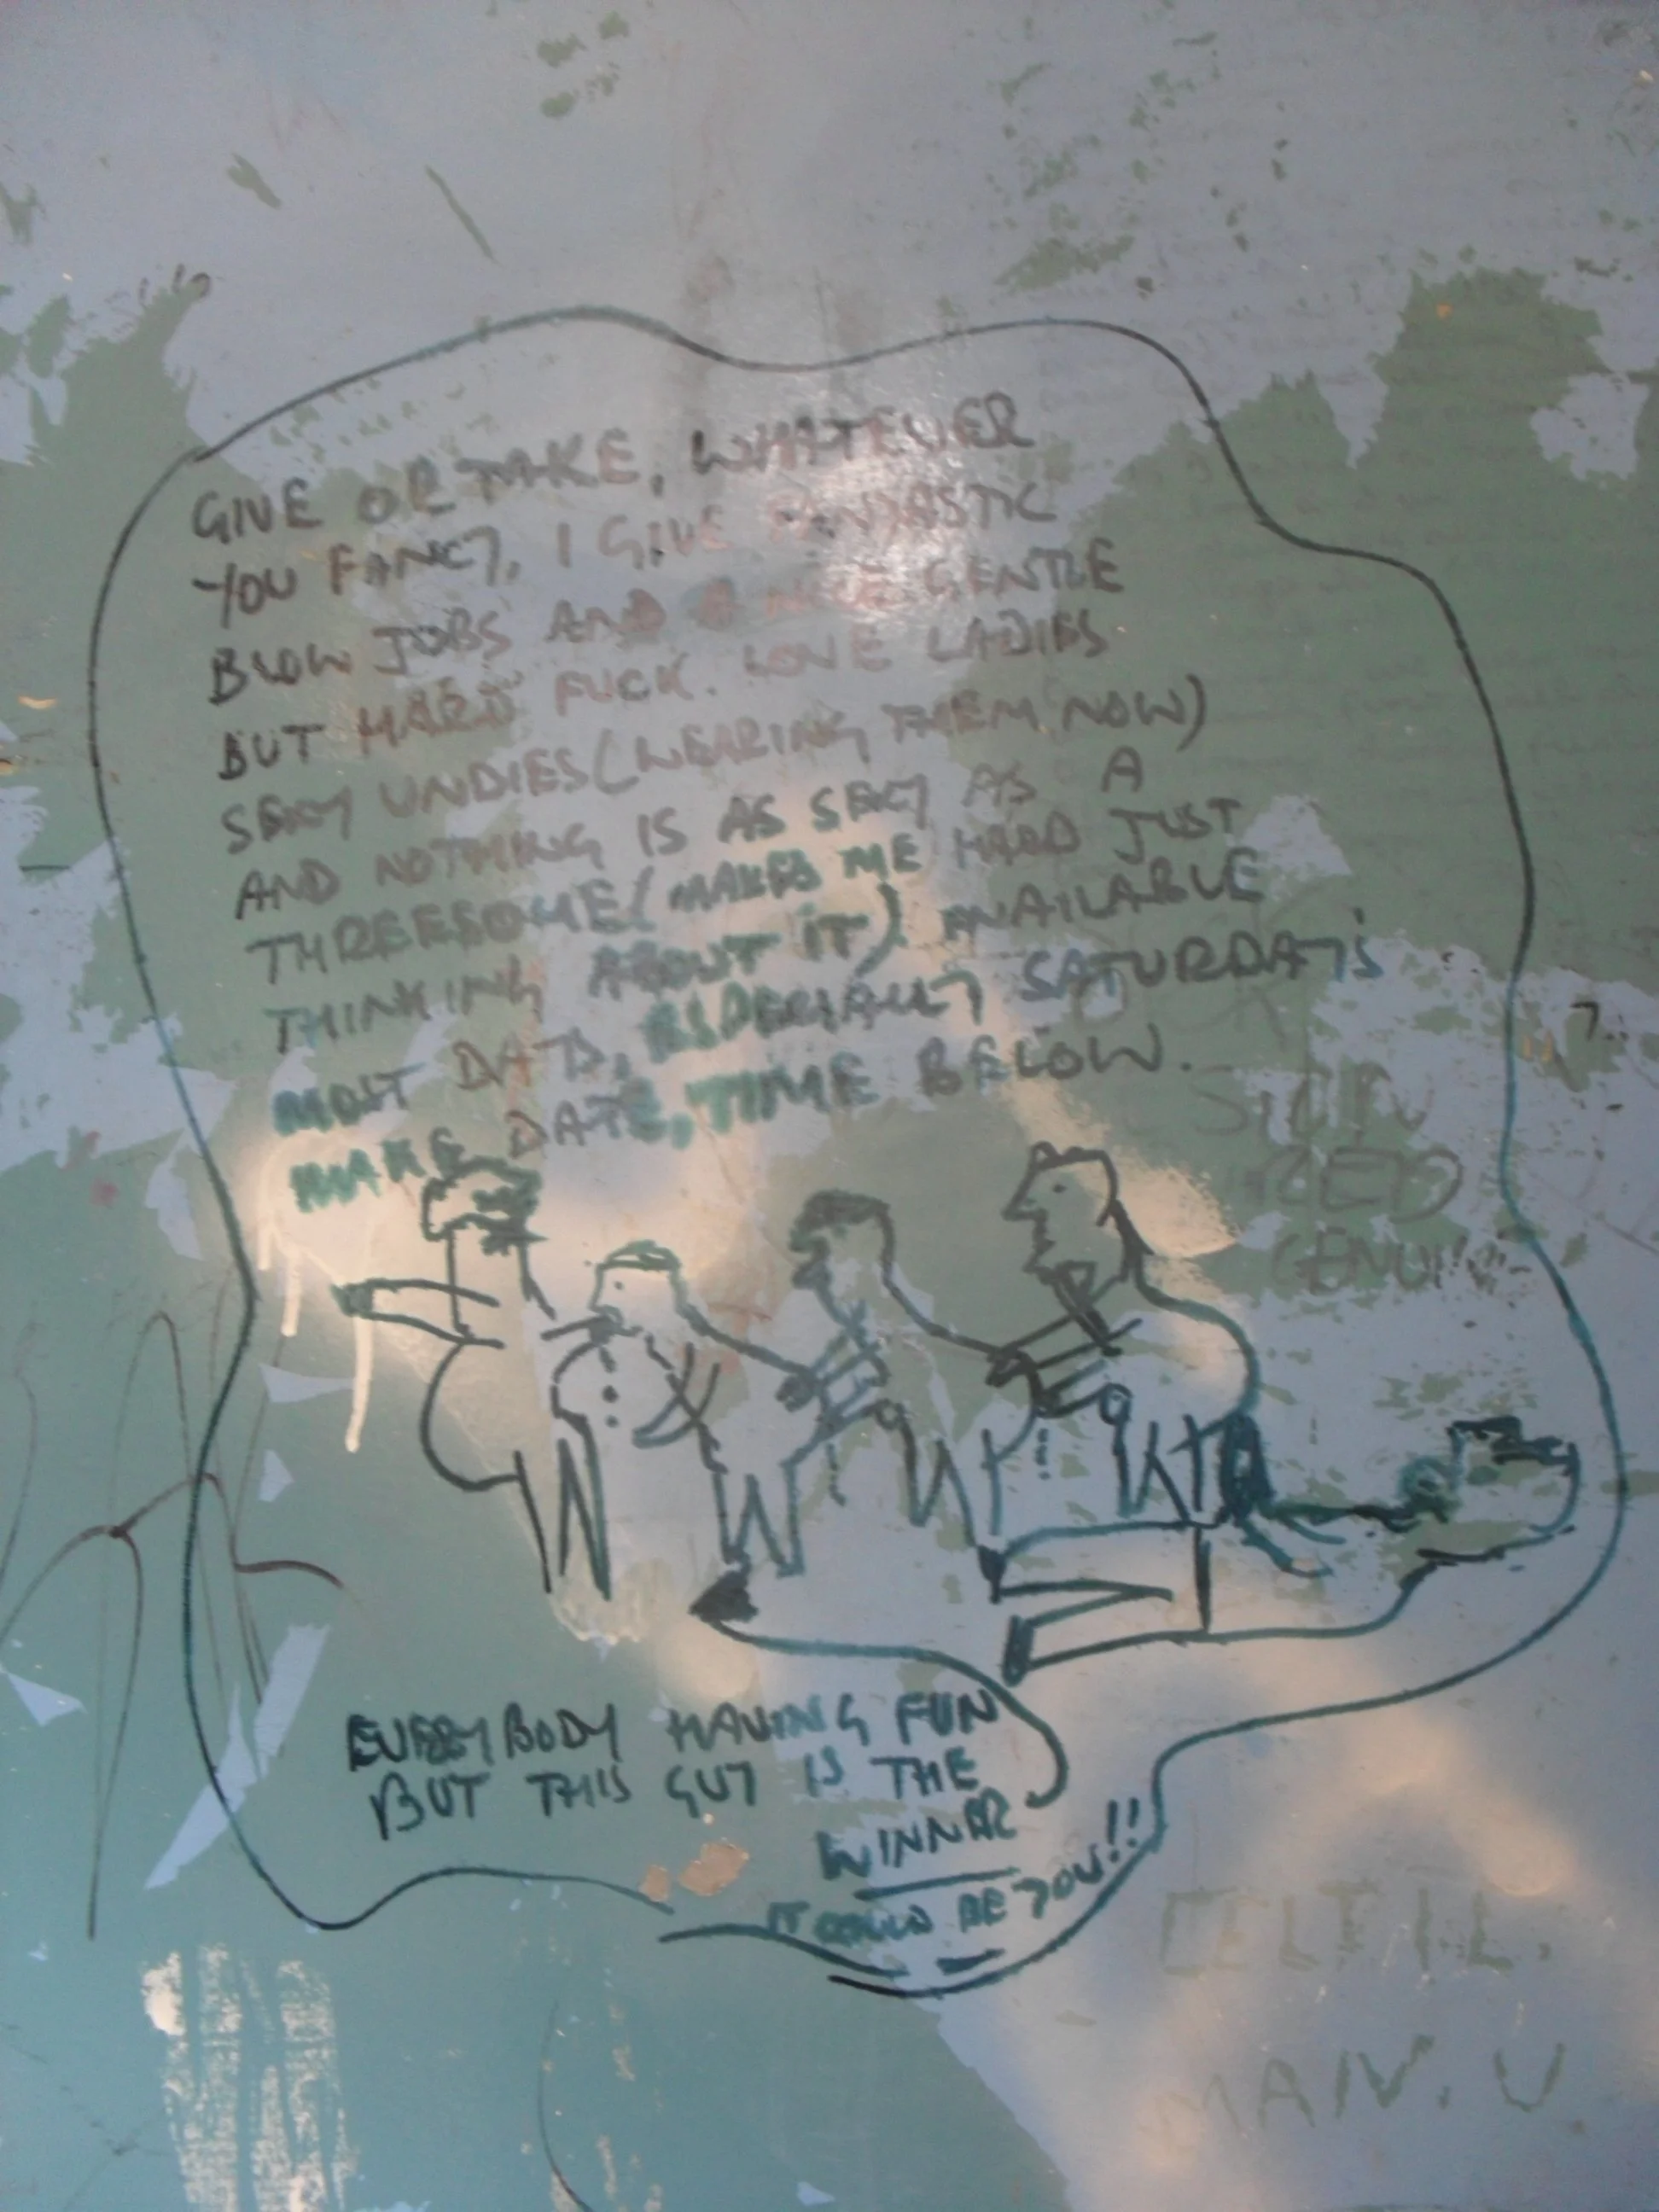 GIVE OR TAKE, WHATEVER
YOU FANCY, I GIVE FANTASTIC
BLOW JOBS AND A NICE GENTLE
BUT HARD FUCK. LOVE LADIES
SEXY UNDIES (WEARING THEM NOW)
AND NOTHING IS AS SEXY AS A
THREESOME (MAKES ME HARD JUST
THINKING ABOUT IT) AVAILABLE
MOST DAYS, SATURDAYS
MAKE DATE, TIME BELOW.
RED
GENUINE
EVERYBODY HAVING FUN
BUT THIS GUY IS THE
WINNER
IT COULD BE YOU!!
MAN. U.